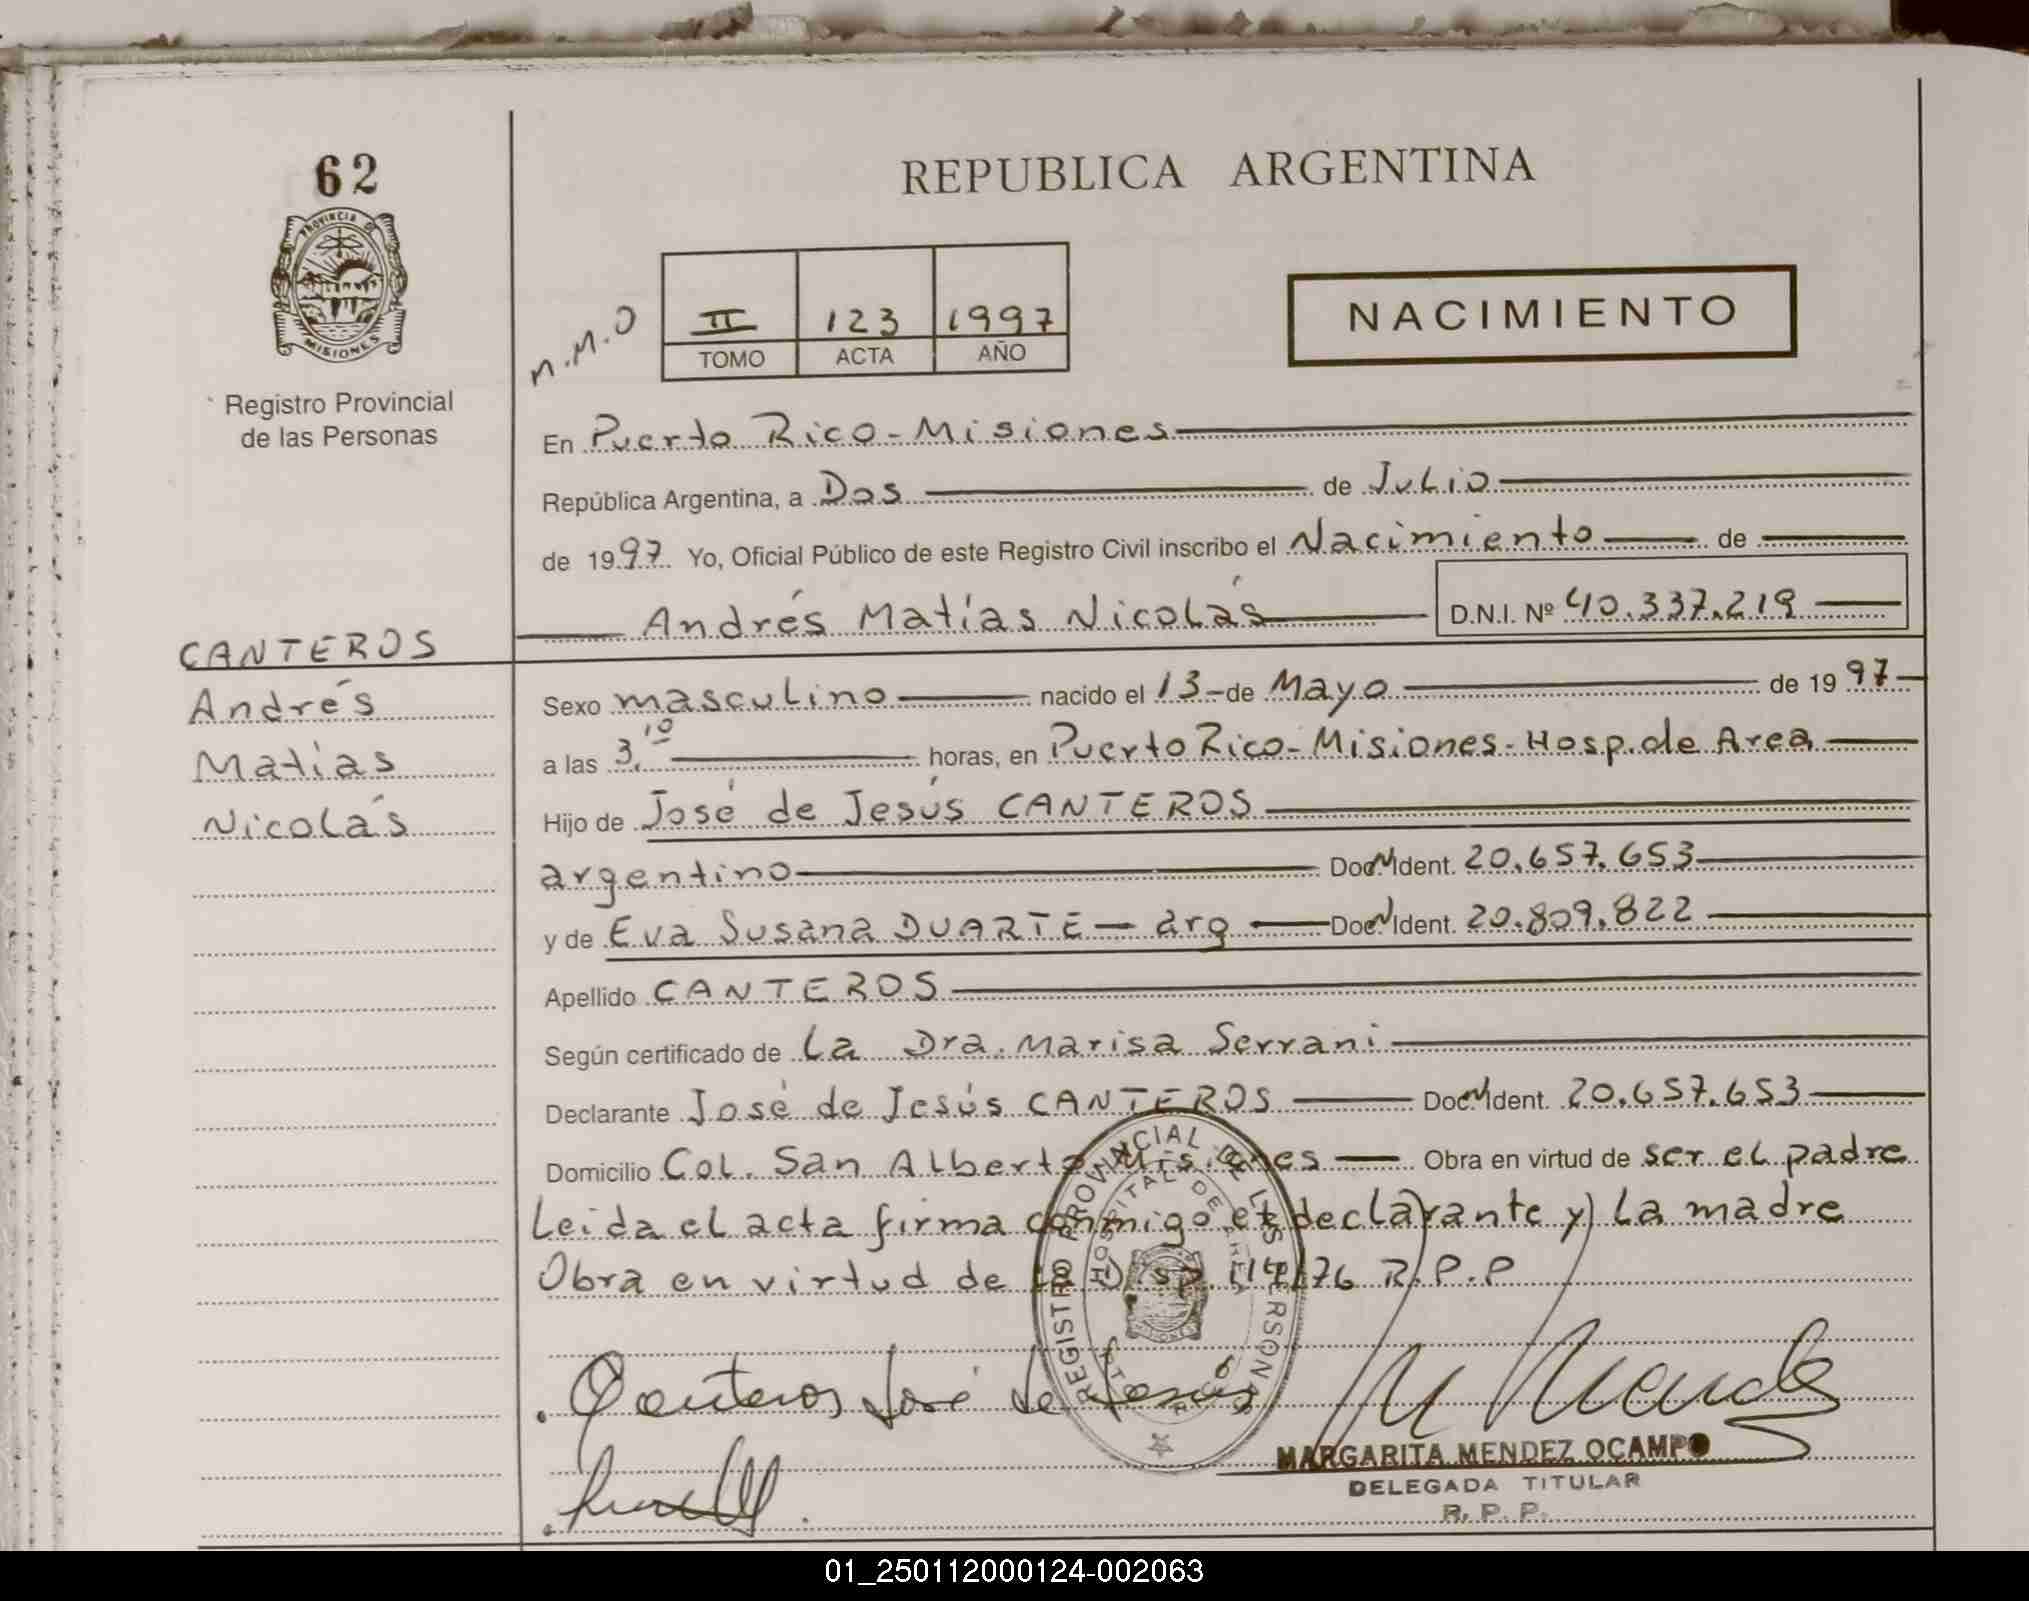 62
REPUBLICA ARGENTINA
PROVINCIA DE
MISIONES
Registro Provincial
de las Personas
M.M.O
II 123 1997
TOMO ACTA AÑO
NACIMIENTO
En Puerto Rico-Misiones
República Argentina, a Dos de Julio
de 1997 Yo, Oficial Público de este Registro Civil inscribo el Nacimiento de
Andrés Matías Nicolás D.N.I. Nº 40.337.219
CANTEROS
Andrés
Matías
Nicolás
Sexo masculino nacido el 13-de Mayo de 1997
a las 3.10 horas, en Puerto Rico-Misiones-Hosp.de Area
Hijo de José de Jesús CANTEROS
argentino Doc.N Ident. 20.657.653
y de Eva Susana DUARTE - arg Doc.N Ident. 20.809.822
Apellido CANTEROS
Según certificado de La Dra. Marisa Serrani
Declarante José de Jesús CANTEROS Doc.N Ident. 20.657.653
Domicilio Col. San Alberto Misiones Obra en virtud de ser el padre
Leida el acta firma conmigo el declarante y la madre
Obra en virtud de la Disp. 114/76 R.P.P
REGISTRO PROVINCIAL DE LAS PERSONAS
HOSPITAL DE AREA
PTO RICO
Canteros José de Jesus
M Mende
MARGARITA MENDEZ OCAMPO
DELEGADA TITULAR
R. P. P.
01_250112000124-002063